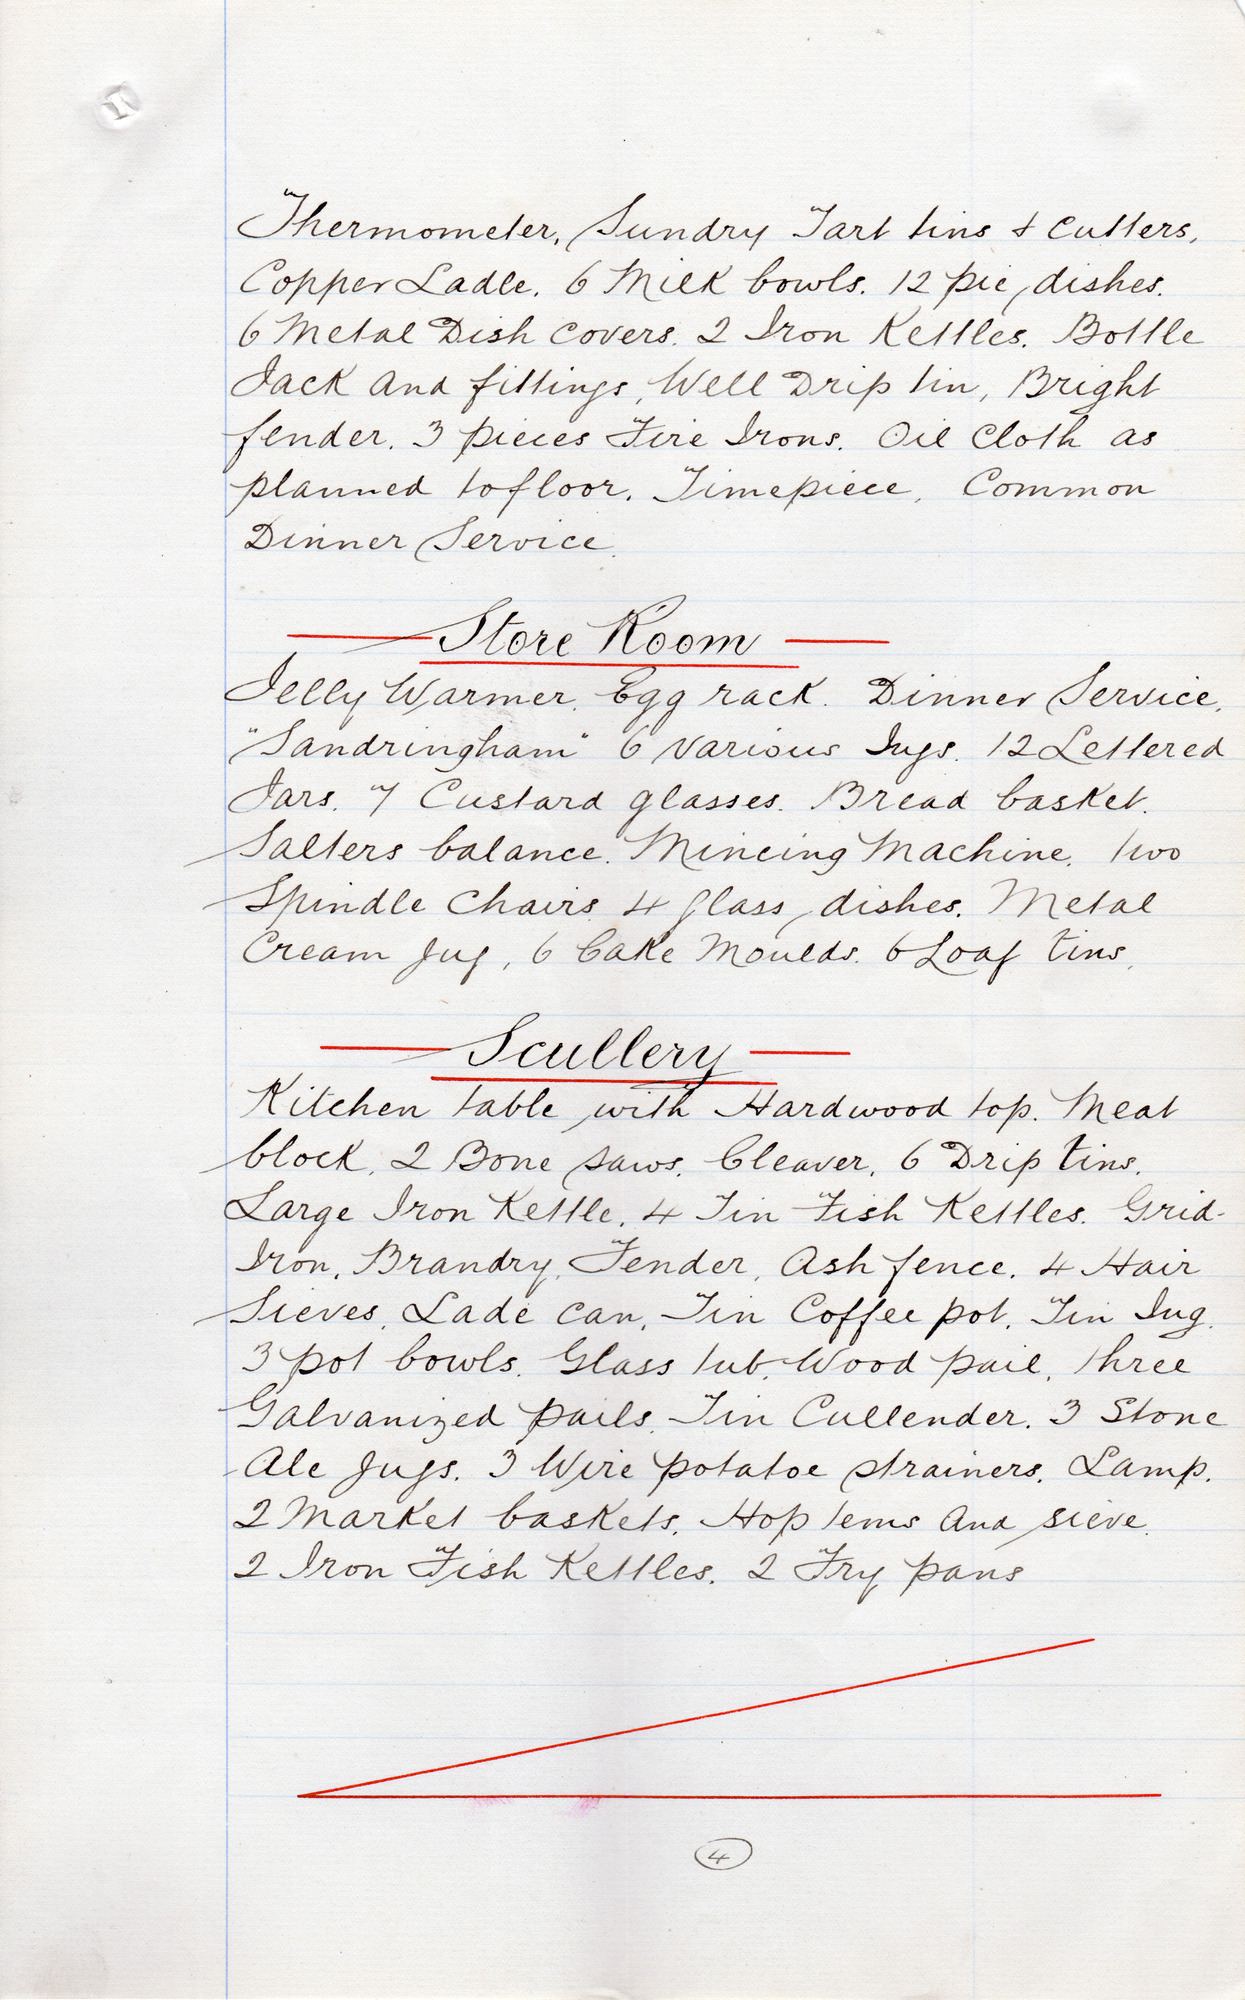 Thermometer, Sundry Tart tins & Cutters,
Copper Ladle. 6 Milk bowls. 12 pie dishes.
6 Metal Dish covers. 2 Iron Kettles. Bottle
Jack and fittings, Well Drip tin, Bright
fender. 3 pieces Fire Irons. Oil Cloth as
planned to floor. Timepiece, Common
Dinner Service.
Store Room
Jelly Warmer. Egg rack. Dinner Service,
"Sandringham" 6 various Jugs. 12 Lettered
Jars. 7 Custard glasses. Bread basket.
Salters balance. Mincing Machine. two
Spindle Chairs. 4 glass dishes. Metal
Cream Jug, 6 Cake Moulds. 6 Loaf tins.
Scullery
Kitchen table with Hardwood top. Meat
block. 2 Bone saws. Cleaver. 6 Drip tins.
Large Iron Kettle. 4 Tin Fish Kettles. Grid-
Iron. Brandry. Fender, Ash fence. 4 Hair
Sieves. Lade can. Tin Coffee pot. Tin Jug.
3 pot bowls. Glass tub. Wood pail. three
Galvanized pails. Tin Cullender. 3 Stone
Ale Jugs. 3 Wire potatoe strainers. Lamp.
2 Market baskets. Hop tems and sieve.
2 Iron Fish Kettles. 2 Fry pans
4